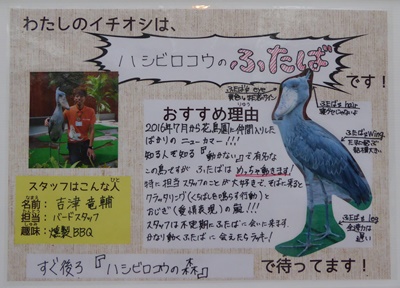 わたしのイチオシは、
ハシビロコウのふたば
です!
おすすめ理由
りゆう
2016年7月から花鳥園に仲間入りした
ばかりのニューカマー!!!
知る人ぞ知る『動かない』で有名な
この鳥ですが ふたばは めっちゃ動きます!
特に担当スタッフのことが大好きで、そばに来ると
クラッタリング(くちばしを鳴らす行動)と
おじぎ(愛情表現)の嵐!!!
スタッフは不定期にふたばに会いに来ます。
かなり動くふたばに会えたらラッキー!
ふたば's eye
ふたば's hair
ふたば's Wing
ふたば's leg
スタッフはこんな人
ひと
名前: 吉津 竜輔
なまえ
担当: バードスタッフ
趣味: 燻製BBQ
しゅみ
すぐ後ろ『ハシビロコウの森』
で待ってます!